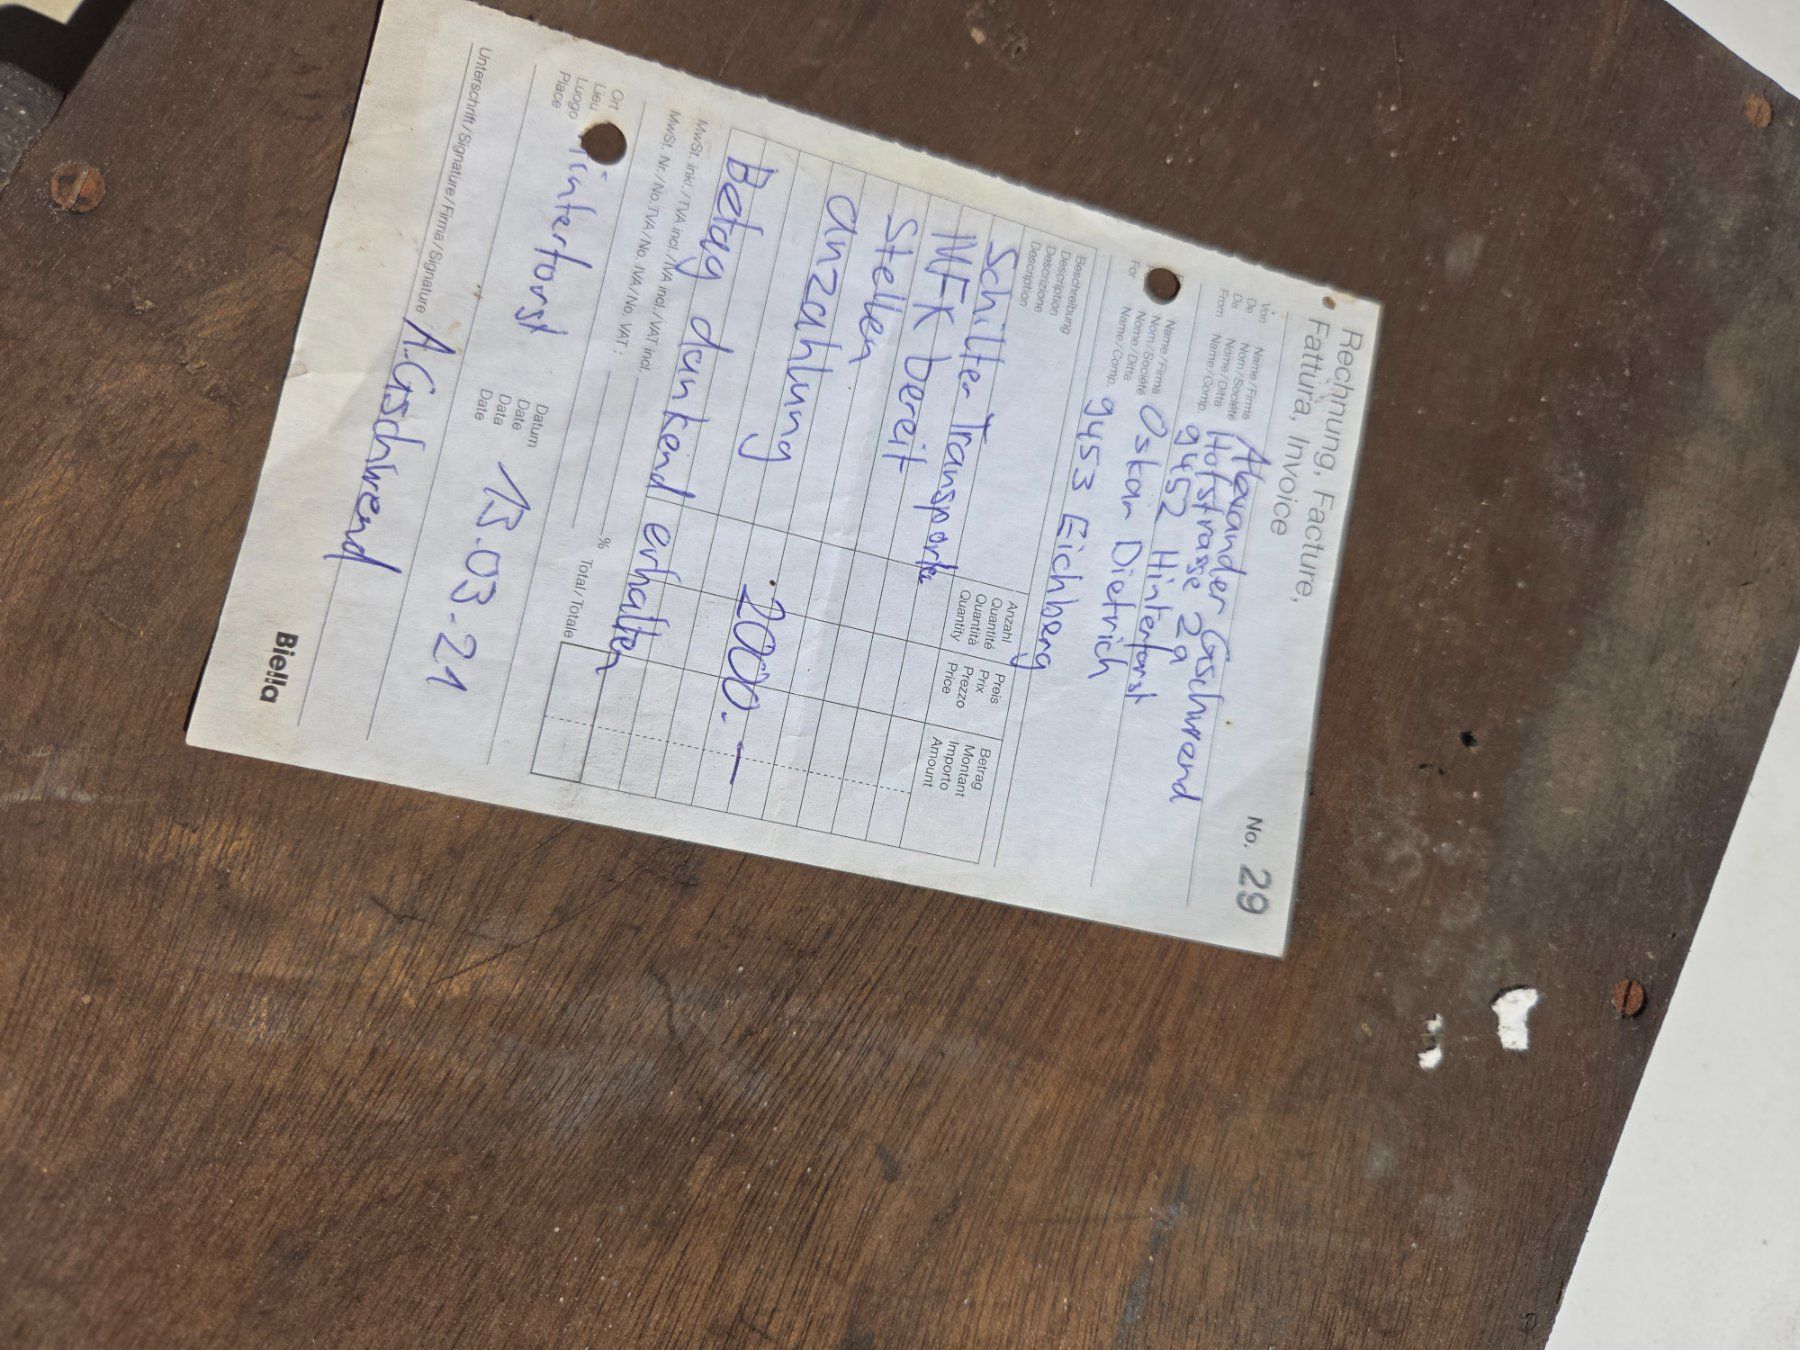 Rechnung, Facture,
Fattura, Invoice
No. 29
Von
De
Da
From
Name/Firma
Nom/Société
Nome/Ditta
Name/Comp.
Alexander Gschwend
Hofstrasse 29
9452 Hinterforst
For
Name/Firma
Nom/Société
Nome/Ditta
Name/Comp.
Oskar Dietrich
9453 Eichberg
Beschreibung
Description
Descrizione
Description
Anzahl
Quantité
Quantità
Quantity
Preis
Prix
Prezzo
Price
Betrag
Montant
Importo
Amount
Schilter Transporter
MFK bereit
Stellen
anzahlung
2000.—
Betag dankend erhalten
MwSt. inkl./TVA incl./IVA incl./VAT incl.
%
Total/Totale
MwSt. Nr./No. TVA/No. IVA/No. VAT:
Ort
Lieu
Luogo
Place
Hinterforst
Datum
Date
Data
Date
15.03.21
Unterschrift/Signature/Firma/Signature
A. Gschwend
Biella